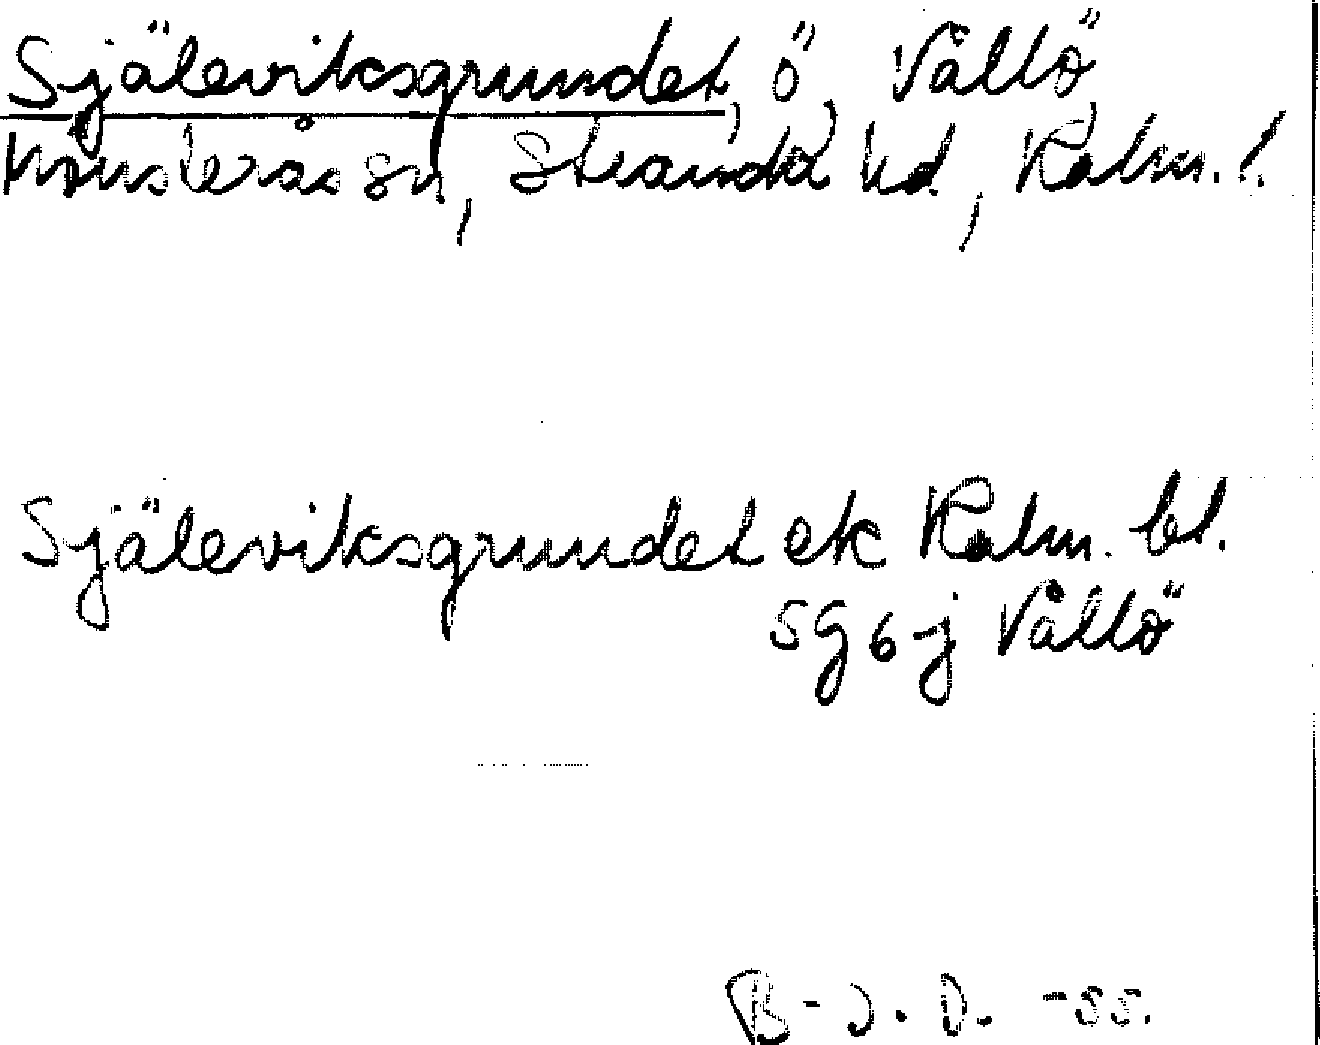 Själeviksgrundet, ö, Vållö,
Mönsterås sn, Stranda hd, Kalm. l.
Själeviksgrundet ek Kalm. bl.
5G6j Vållö
B-J. D. -55.